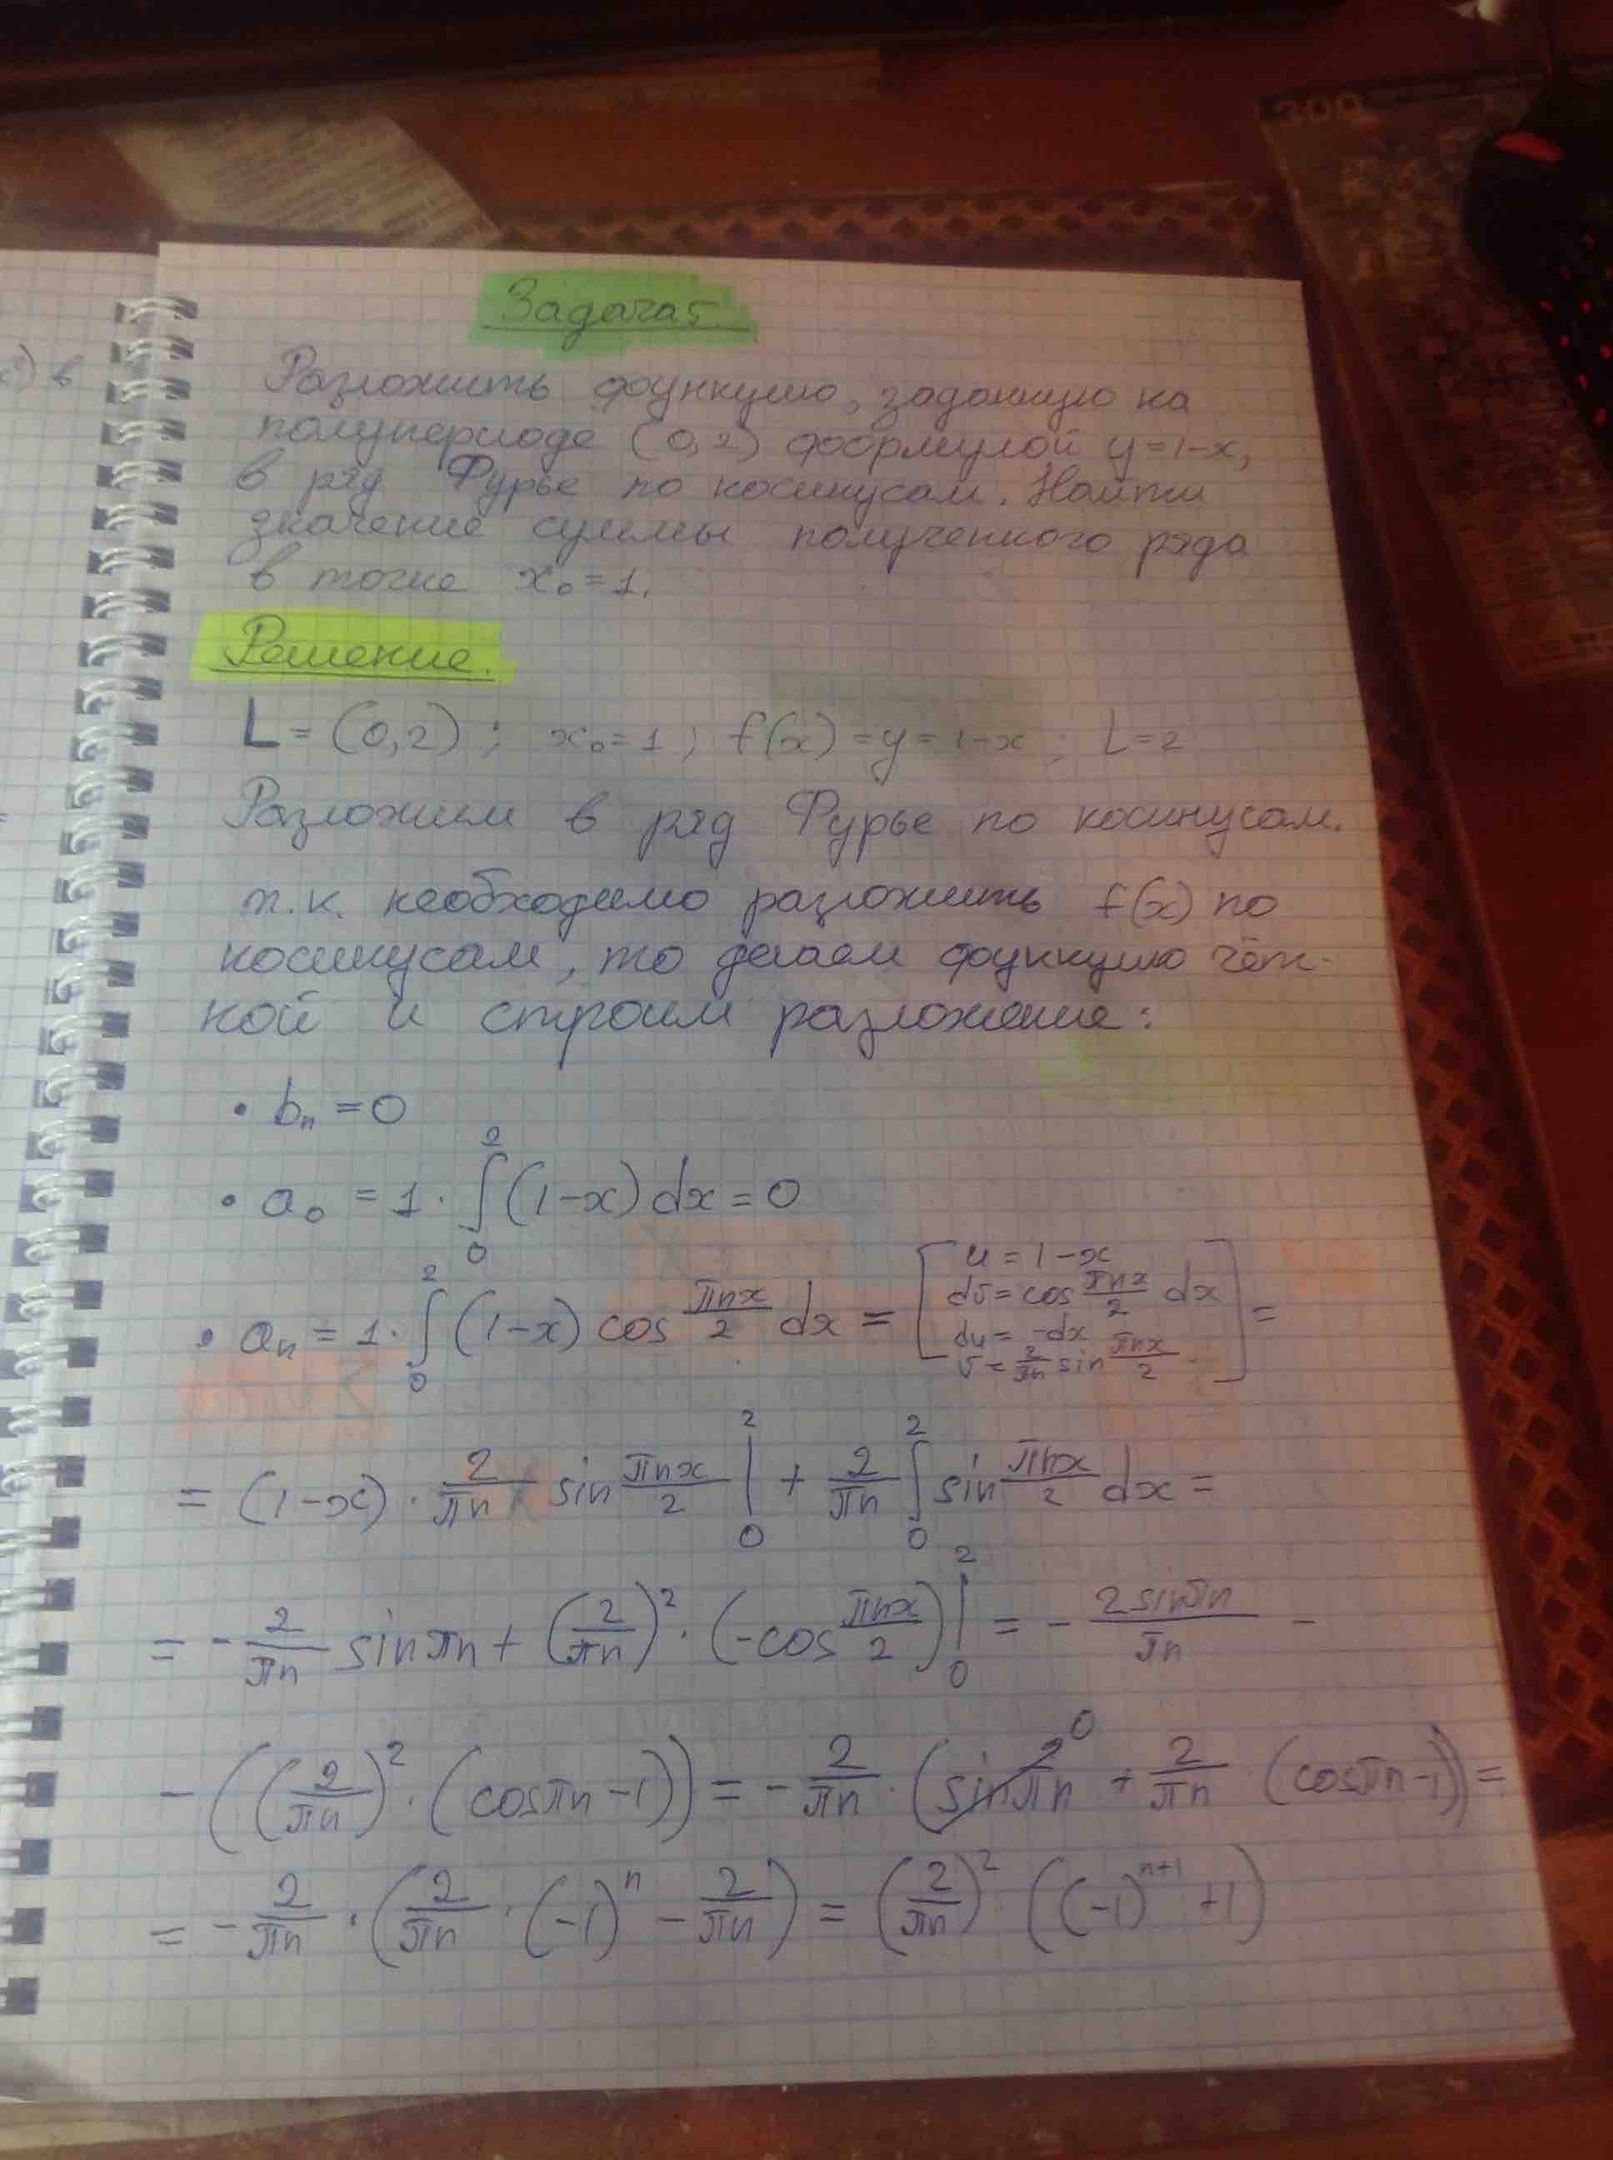 300
с) в
Задача 5.
Разложить функцию, заданную на
полупериоде (0,2) формулой y=1-x,
в ряд Фурье по косинусам. Найти
значение суммы полученного ряда
в точке x₀=1.
Решение.
L = (0,2) ; x₀=1 ; f(x)=y=1-x ; L=2
Разложим в ряд Фурье по косинусам.
т.к. необходимо разложить f(x) по
косинусам, то делаем функцию чёт-
ной и строим разложение:
• bₙ = 0
• a₀ = 1 · ∫₀² (1-x) dx = 0
• aₙ = 1 · ∫₀² (1-x) cos πnx/2 dx = [ u = 1-x
dv = cos πnx/2 dx
du = -dx
v = 2/πn sin πnx/2 ] =
= (1-x) · 2/πn sin πnx/2 |₀² + 2/πn ∫₀² sin πnx/2 dx =
= - 2/πn sin πn + (2/πn)² · (-cos πnx/2) |₀² = - 2 sin πn/πn -
- ((2/πn)² · (cos πn - 1)) = - 2/πn · (sin πn 0 + 2/πn · (cos πn - 1)) =
= - 2/πn · (2/πn · (-1)ⁿ - 2/πn) = (2/πn)² · ((-1)ⁿ⁺¹ + 1)